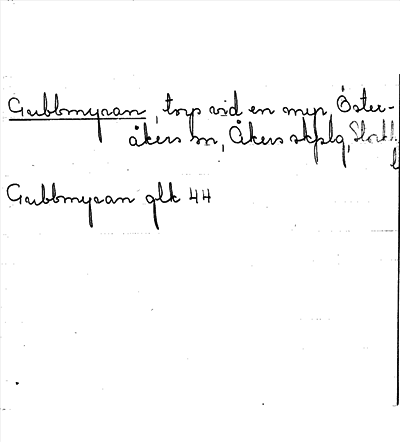 Gubbmyran, torp vid en myr, Öster-
åkers sn, Åkers skplg, Stockh.
l
Gubbmyran glk 44